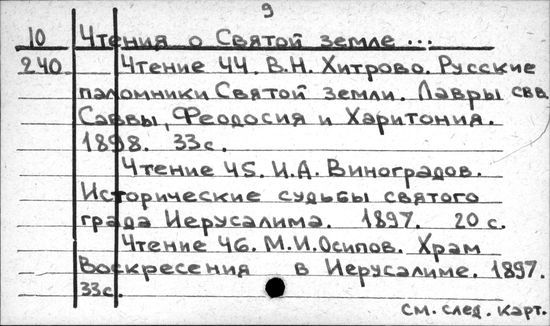 9
10 Чтения о Святой земле ...
240 Чтение 44. В.Н. Хитрово. Русские
паломники Святой земли. Лавры свв
Саввы, Феодосия и Харитония.
1898. 33с.
Чтение 45. И.А. Виноградов.
Исторические судьбы святого
града Иерусалима. 1897. 20 с.
Чтение 46. М.И. Осипов. Храм
Воскресения в Иерусалиме. 1897.
33с.
см. след. карт.